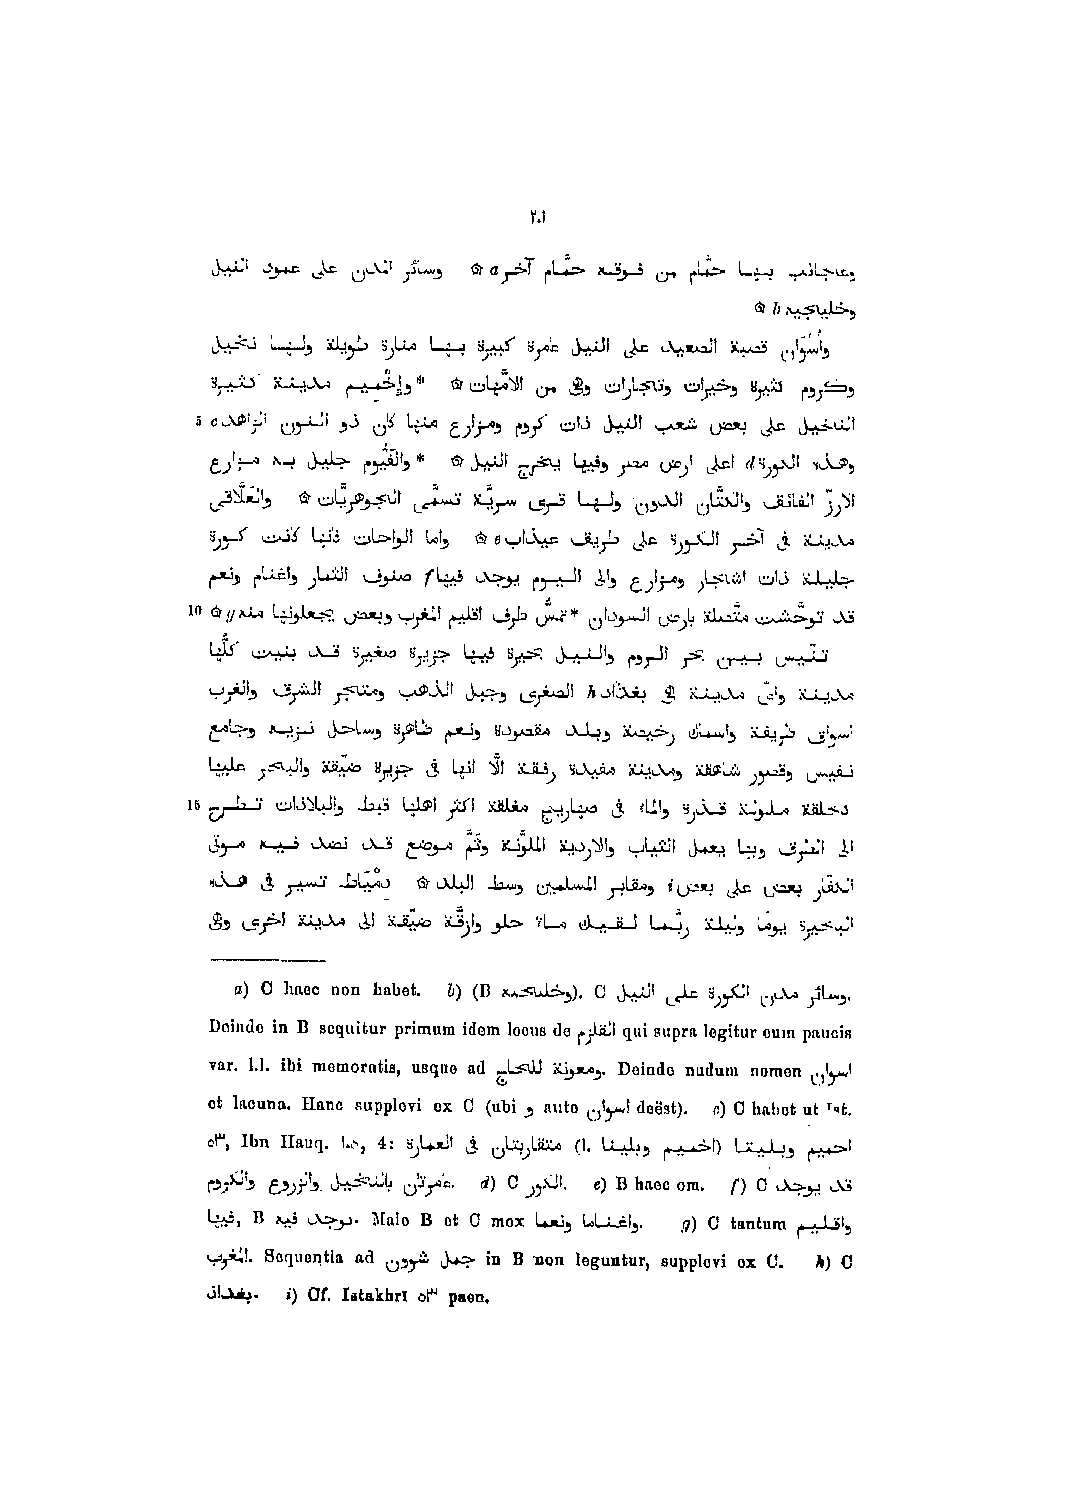 ٢٠١
وعجائب بها حمّام من فوقه حمّام آخر a ۞ وسائر المدن على عمود النيل
وخلجيه b ۞
وأُسْوَان قصبة الصعيد على النيل عامرة كبيرة بها منارة طويلة ولها نخيل
وكروم كثيرة وخيرات وتجارات وهى من الامّهات ۞ * وإخْميم مدينة كثيرة
5 النخيل على بعض شعب النيل ذات كروم ومزارع منها كان ذو النون الزاهد c
وهذه الكورة d اعلى ارض مصر وفيها يخرج النيل ۞ * والفَيُّوم جليل به مزارع
الارزّ الفائق والكتّان الدون ولها قرى سريّة تسمّى الجوهريّات ۞ والعَلَّاقى
مدينة فى آخر الكورة على طريق عيذاب e ۞ واما الواحات فانها كانت كورة
جليلة ذات اشجار ومزارع والى اليوم يوجد فيها f صنوف الثمار واغنام ونعم
10 قد توحّشت متّصلة بارض السودان * تمسّ طرف اقليم المغرب وبعض يجعلونها منه g ۞
تنّيس بين بحر الروم والنيل بحيرة فيها جزيرة صغيرة قد بنيت كلّها
مدينة واىّ مدينة هى بغداد h الصغرى وجبل الذهب ومتجر الشرق والغرب
اسواق ظريفة واسماك رخيصة وبلد مقصودة ونعم ظاهرة وساحل نزيه وجامع
نفيس وقصور شاهقة ومدينة مفيدة رفقة الّا انها فى جزيرة ضيّقة والبحر عليها
15 كحلقة ملولة قذرة والماء فى صهاريج مغلقة اكثر اهلها قبط والبلاذات تطرح
الى الطرق وبها يعمل الثياب والاردية الملوّنة وثَمّ موضع قد نضد فيه موتى
الكفّار بعض على بعض i ومقابر المسلمين وسط البلد ۞ دِمْيَاط تسير فى هذه
البحيرة يومًا وليلة ربّما لقيك ماء حلو وازقّة ضيّقة الى مدينة اخرى وهى
a) C haec non habet. b) (B وخليجه). C وسائر مدن الكورة على النيل.
Deinde in B sequitur primum idem locus de القلزم qui supra legitur cum paucis
var. l.l. ibi memoratis, usque ad ومعونة للحاج. Deinde nudum nomen اسوان
et lacuna. Hanc supplevi ex C (ubi و ante اسوان deëst). c) C habet ut Ist.
٥٣, Ibn Hauq. ١٠٥, 4: اخميم وبليتا (l. اخميم وبلينا) متقاربتان فى العمارة
عامرتان بالنخيل والزروع والكروم. d) C الكور. e) B haec om. f) C قد يوجد
فيها, B توجد فيه. Malo B et C mox واغناما ونعما. g) C tantum واقليم
المغرب. Sequentia ad جمل شوون in B non leguntur, supplevi ex C. h) C
بغداد. i) Cf. Istakhrî ٥٣ paen.